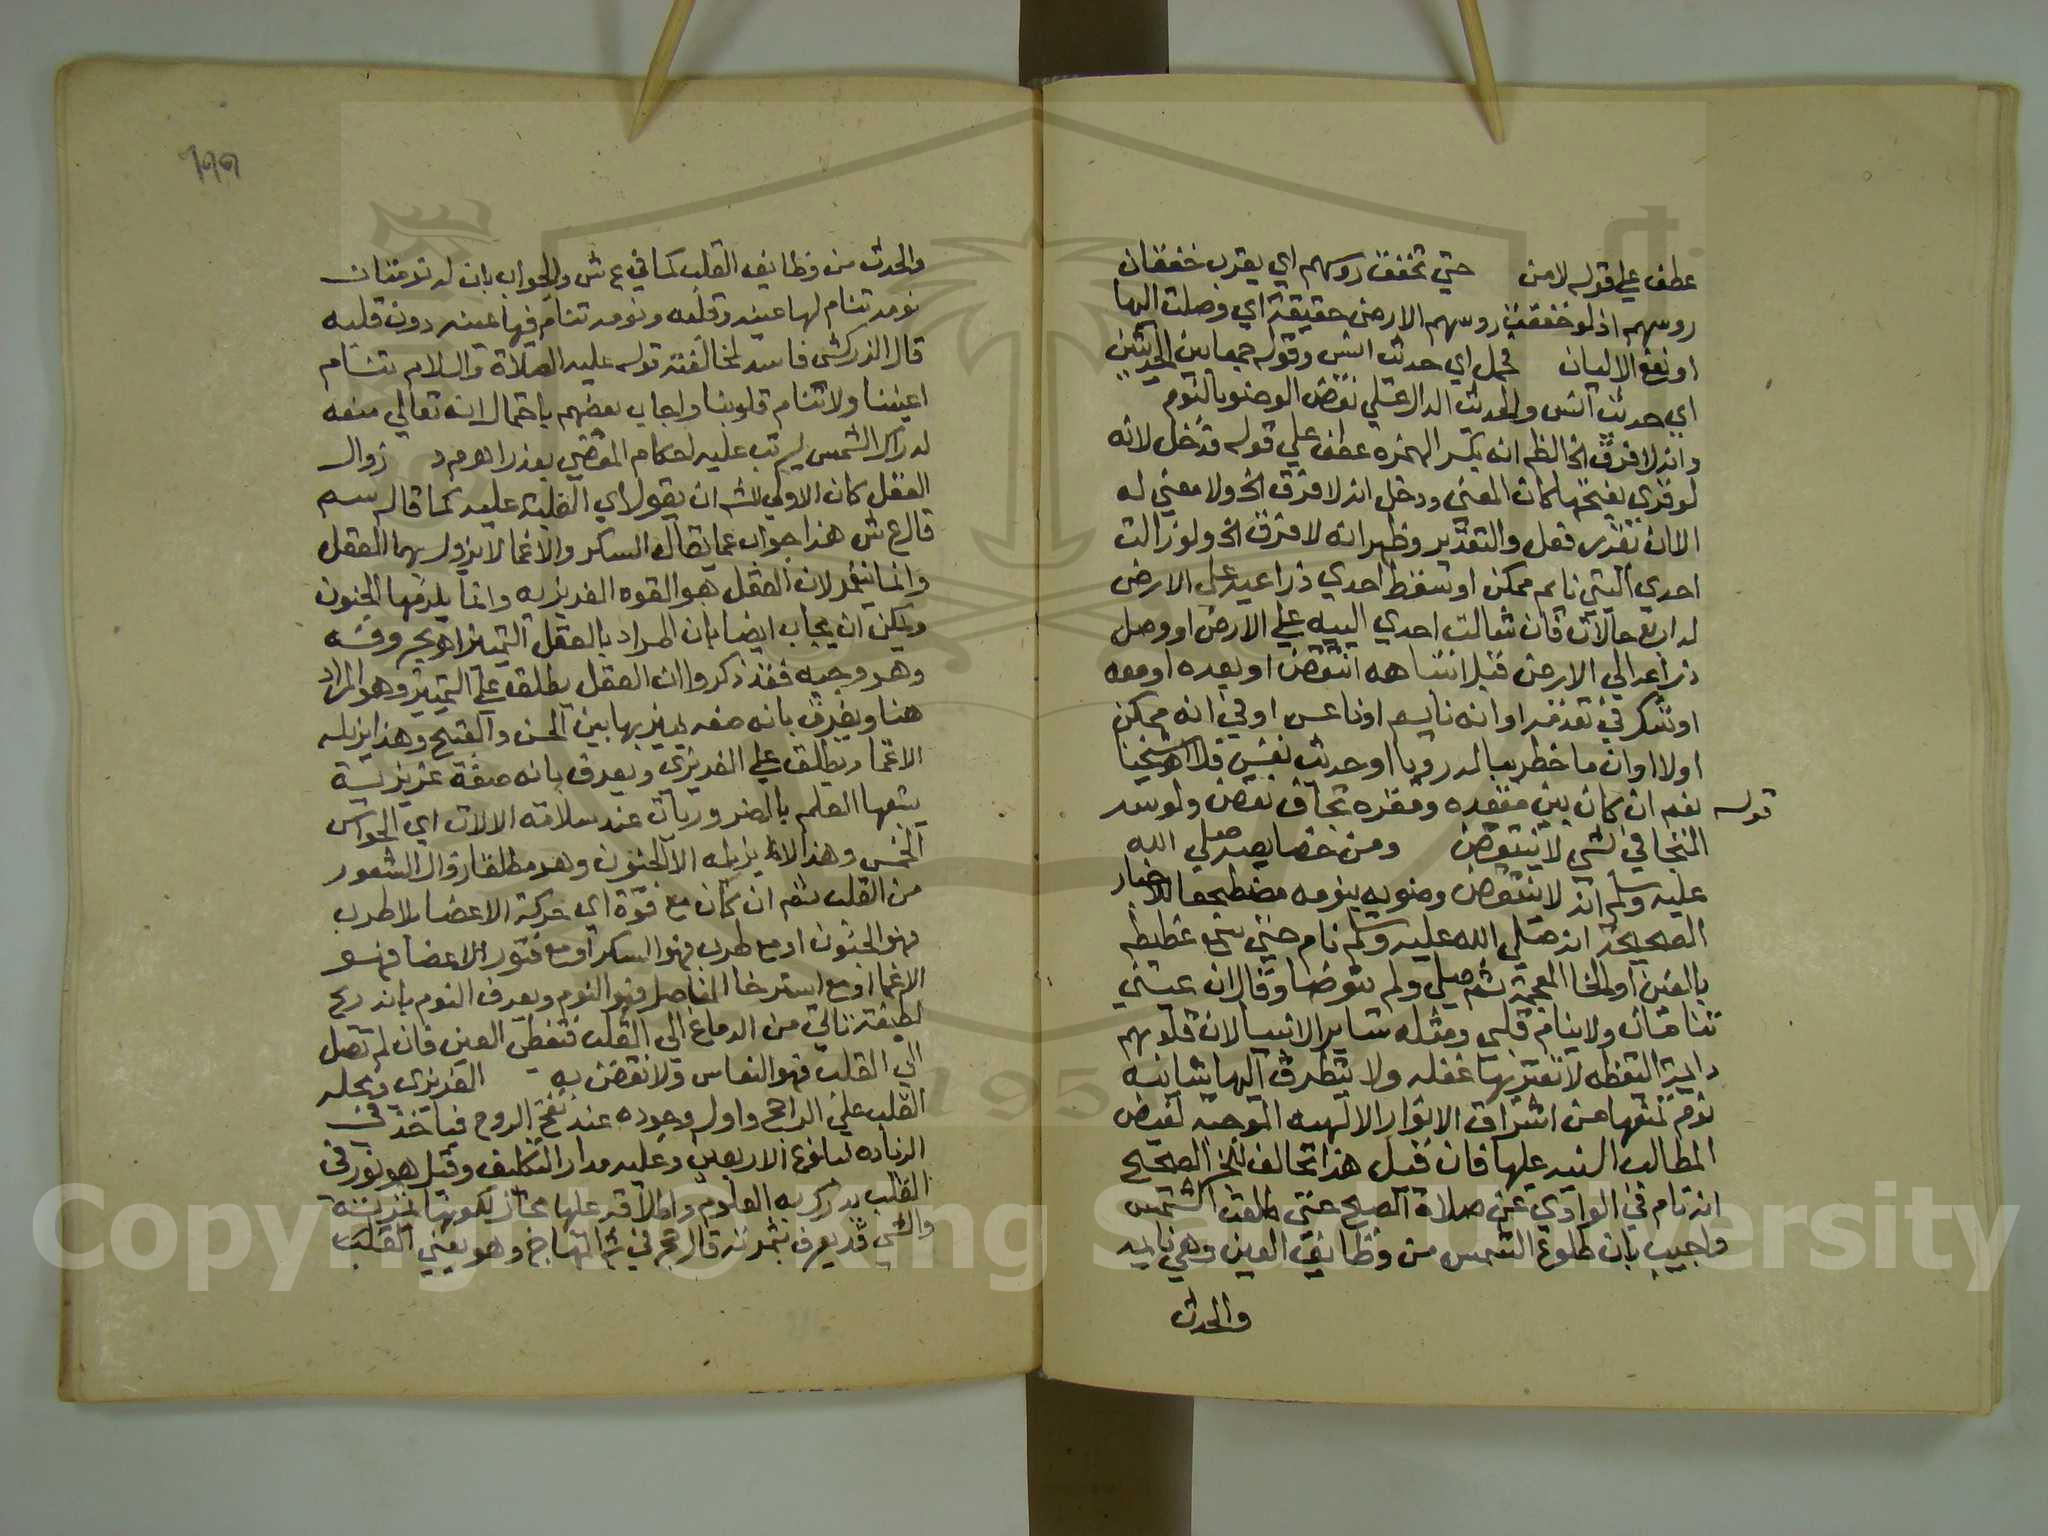 عطف علي قوله لا من حتي تخفق روسهم اي يقرب خفقان
روسهم اذ لو خفقت روسهم الارض حقيقة اي وصلت اليها
او رفع الاليان فحمل اي حديث انس وقوله جمعا بين الحديثين
اي حديث انس والحديث الدال علي نقض الوضو بالنوم
وانه لا فرق الخ الظ انه بكسر الهمزه عطف علي قوله فدخل لانه
لو قري بفتحها لكان المعني ودخل انه لا فرق الخ ولا معني له
الا ان نقدر فعل والتقدير وظهر انه لا فرق الخ ولو زالت
احدي اليتي نايم ممكن او سقط احدي ذراعيه علي الارض
له اربع حالات فان شالت احدي الييه علي الارض او وصل
ذراعه الي الارض قبل انتباهه انتقض او بعده او معه
او شك في تقدمه او انه نايم او ناعس او في انه ممكن
اولا او ان ما خطر بباله رويا او حديث نفس فلا اه شيخنا
نعم ان كان بين مقعده ومقره تجاف نقض ولو سد
قوله
التجافي بشي لا ينتقض ومن خصايصه صلي الله
عليه وسلم انه لا ينتقض وضويه بنومه مضطجعا للاخبار
الصحيحة انه صلي الله عليه وسلم نام حتي سمع غطيطه
بالغين او بالخا المعجمة ثم صلي ولم يتوضا وقال ان عيني
تنامان ولا ينام قلبي ومثله ساير الانبيا لان قلوبهم
دايمة اليقظه لا تعتريها غفله ولا يتطرق اليها شايبة
نوم لمنعها من اشراق الانوار الالهيه الموجبه لفيض
المطالب السنيه عليها فان قيل هذا تخالف للخبر الصحيح
انه نام في الوادي عن صلاة الصبح حتي طلعت الشمس
واجيب بان طلوع الشمس من وظايف العين وهي نايمه
والحدث
٦٩٩
والحدث من وظايف القلب كما في ع ش والجواب بان له نومتان
نومه تنام لها عينه وقلبه ونومه تنام فيها عينه دون قلبه
قال الزركشي فاسد لمخالفته قوله عليه الصلاة والسلام تنام
اعيننا ولا تنام قلوبنا واجاب بعضهم باحتمال انه تعالي منعه
ادراك الشمس ليرتب عليه احكام المقضي بعذر اهم د زوال
العقل كان الاولي للش ان يقول اي الغلبة عليه كما قاله سم
قال ع ش هذا جواب عما يقال السكر والاغما لا يزول بهما العقل
وانما ينغمر لان العقل هو القوه الغريزيه وانما يزيلها الجنون
ويمكن ان يجاب ايضا بان المراد بالعقل التمييز اه بحروفه
وهو وجيه فقد ذكروا ان العقل يطلق علي التمييز وهو المراد
هنا ويعرف بانه صفه يميز بها بين الحسن والقبيح وهذا يزيله
الاغما ويطلق علي الغريزي ويعرف بانه صفة غريزية
يتبعها العلم بالضروريات عند سلامة الالات اي الحواس
الخمس وهذا لا يزيله الا الجنون وهو مطلقا زوال الشعور
من القلب ثم ان كان مع قوة اي حركة الاعضا بلا طرب
فهو الجنون او مع طرب فهو السكر او مع فتور الاعضا فهو
الاغما او مع استرخا المفاصل فهو النوم ويعرف النوم بانه ريح
لطيفة تاتي من الدماغ الي القلب فتغطي العين فان لم تصل
الي القلب فهو النعاس ولا نقض به الغريزي ومحله
القلب علي الراجح واول وجوده عند نفخ الروح فياخذ في
الزياده لبلوغ الاربعين وعليه مدار التكليف وقيل هو نور في
القلب يدرك به العلوم واطلاقه عليها مجاز لكونها ثمرته
والشي قد يعرف بثمرته قال حج في ش المنهاج وهو يعني القلب
Copyright © King Saud University
1957